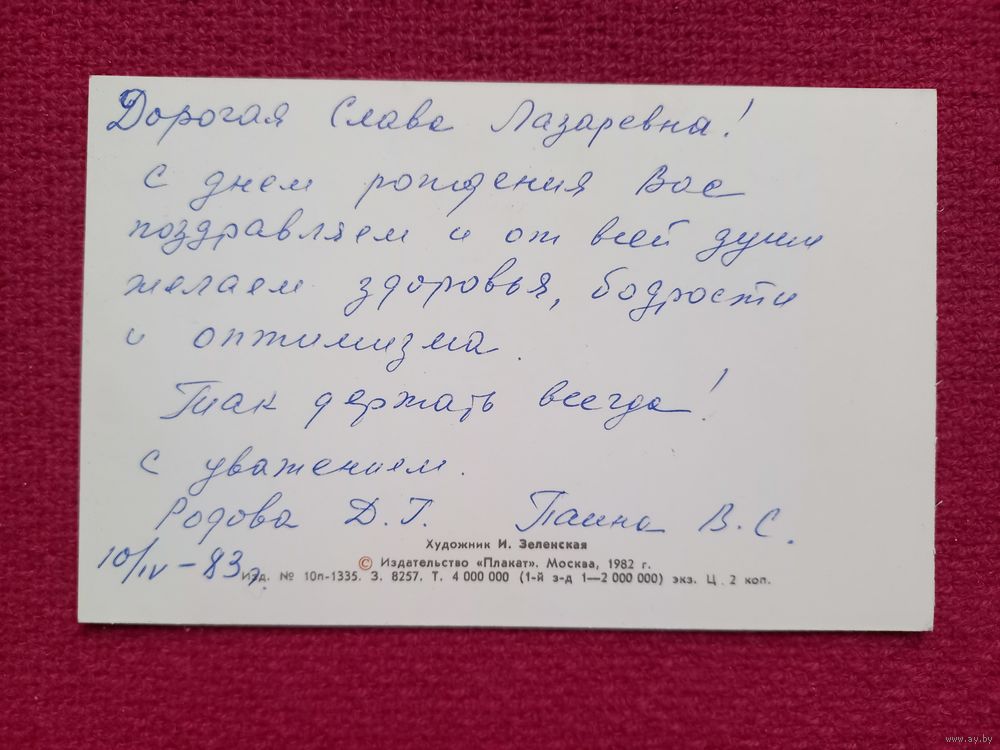 Дорогая Слава Лазаревна!
С днем рождения Вас
поздравляем и от всей души
желаем здоровья, бодрости
и оптимизма.
Так держать всегда!
С уважением.
Родова Д.Г. В.С.
10/IV-83г.
Художник И. Зеленская
© Издательство «Плакат». Москва, 1982 г.
Изд. № 10п-1335. З. 8257. Т. 4 000 000 (1-й з-д 1—2 000 000) экз. Ц. 2 коп.
www.ay.by